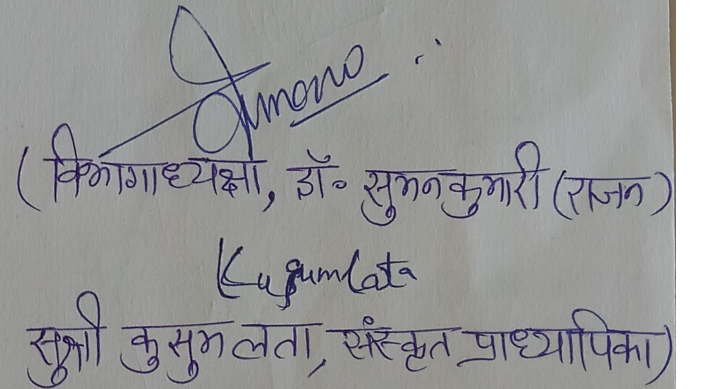 (विभागाध्यक्षा, डॉ० सुमनकुमारी (राजन)
Kusumlata
सुश्री कुसुमलता, संस्कृत प्राध्यापिका)